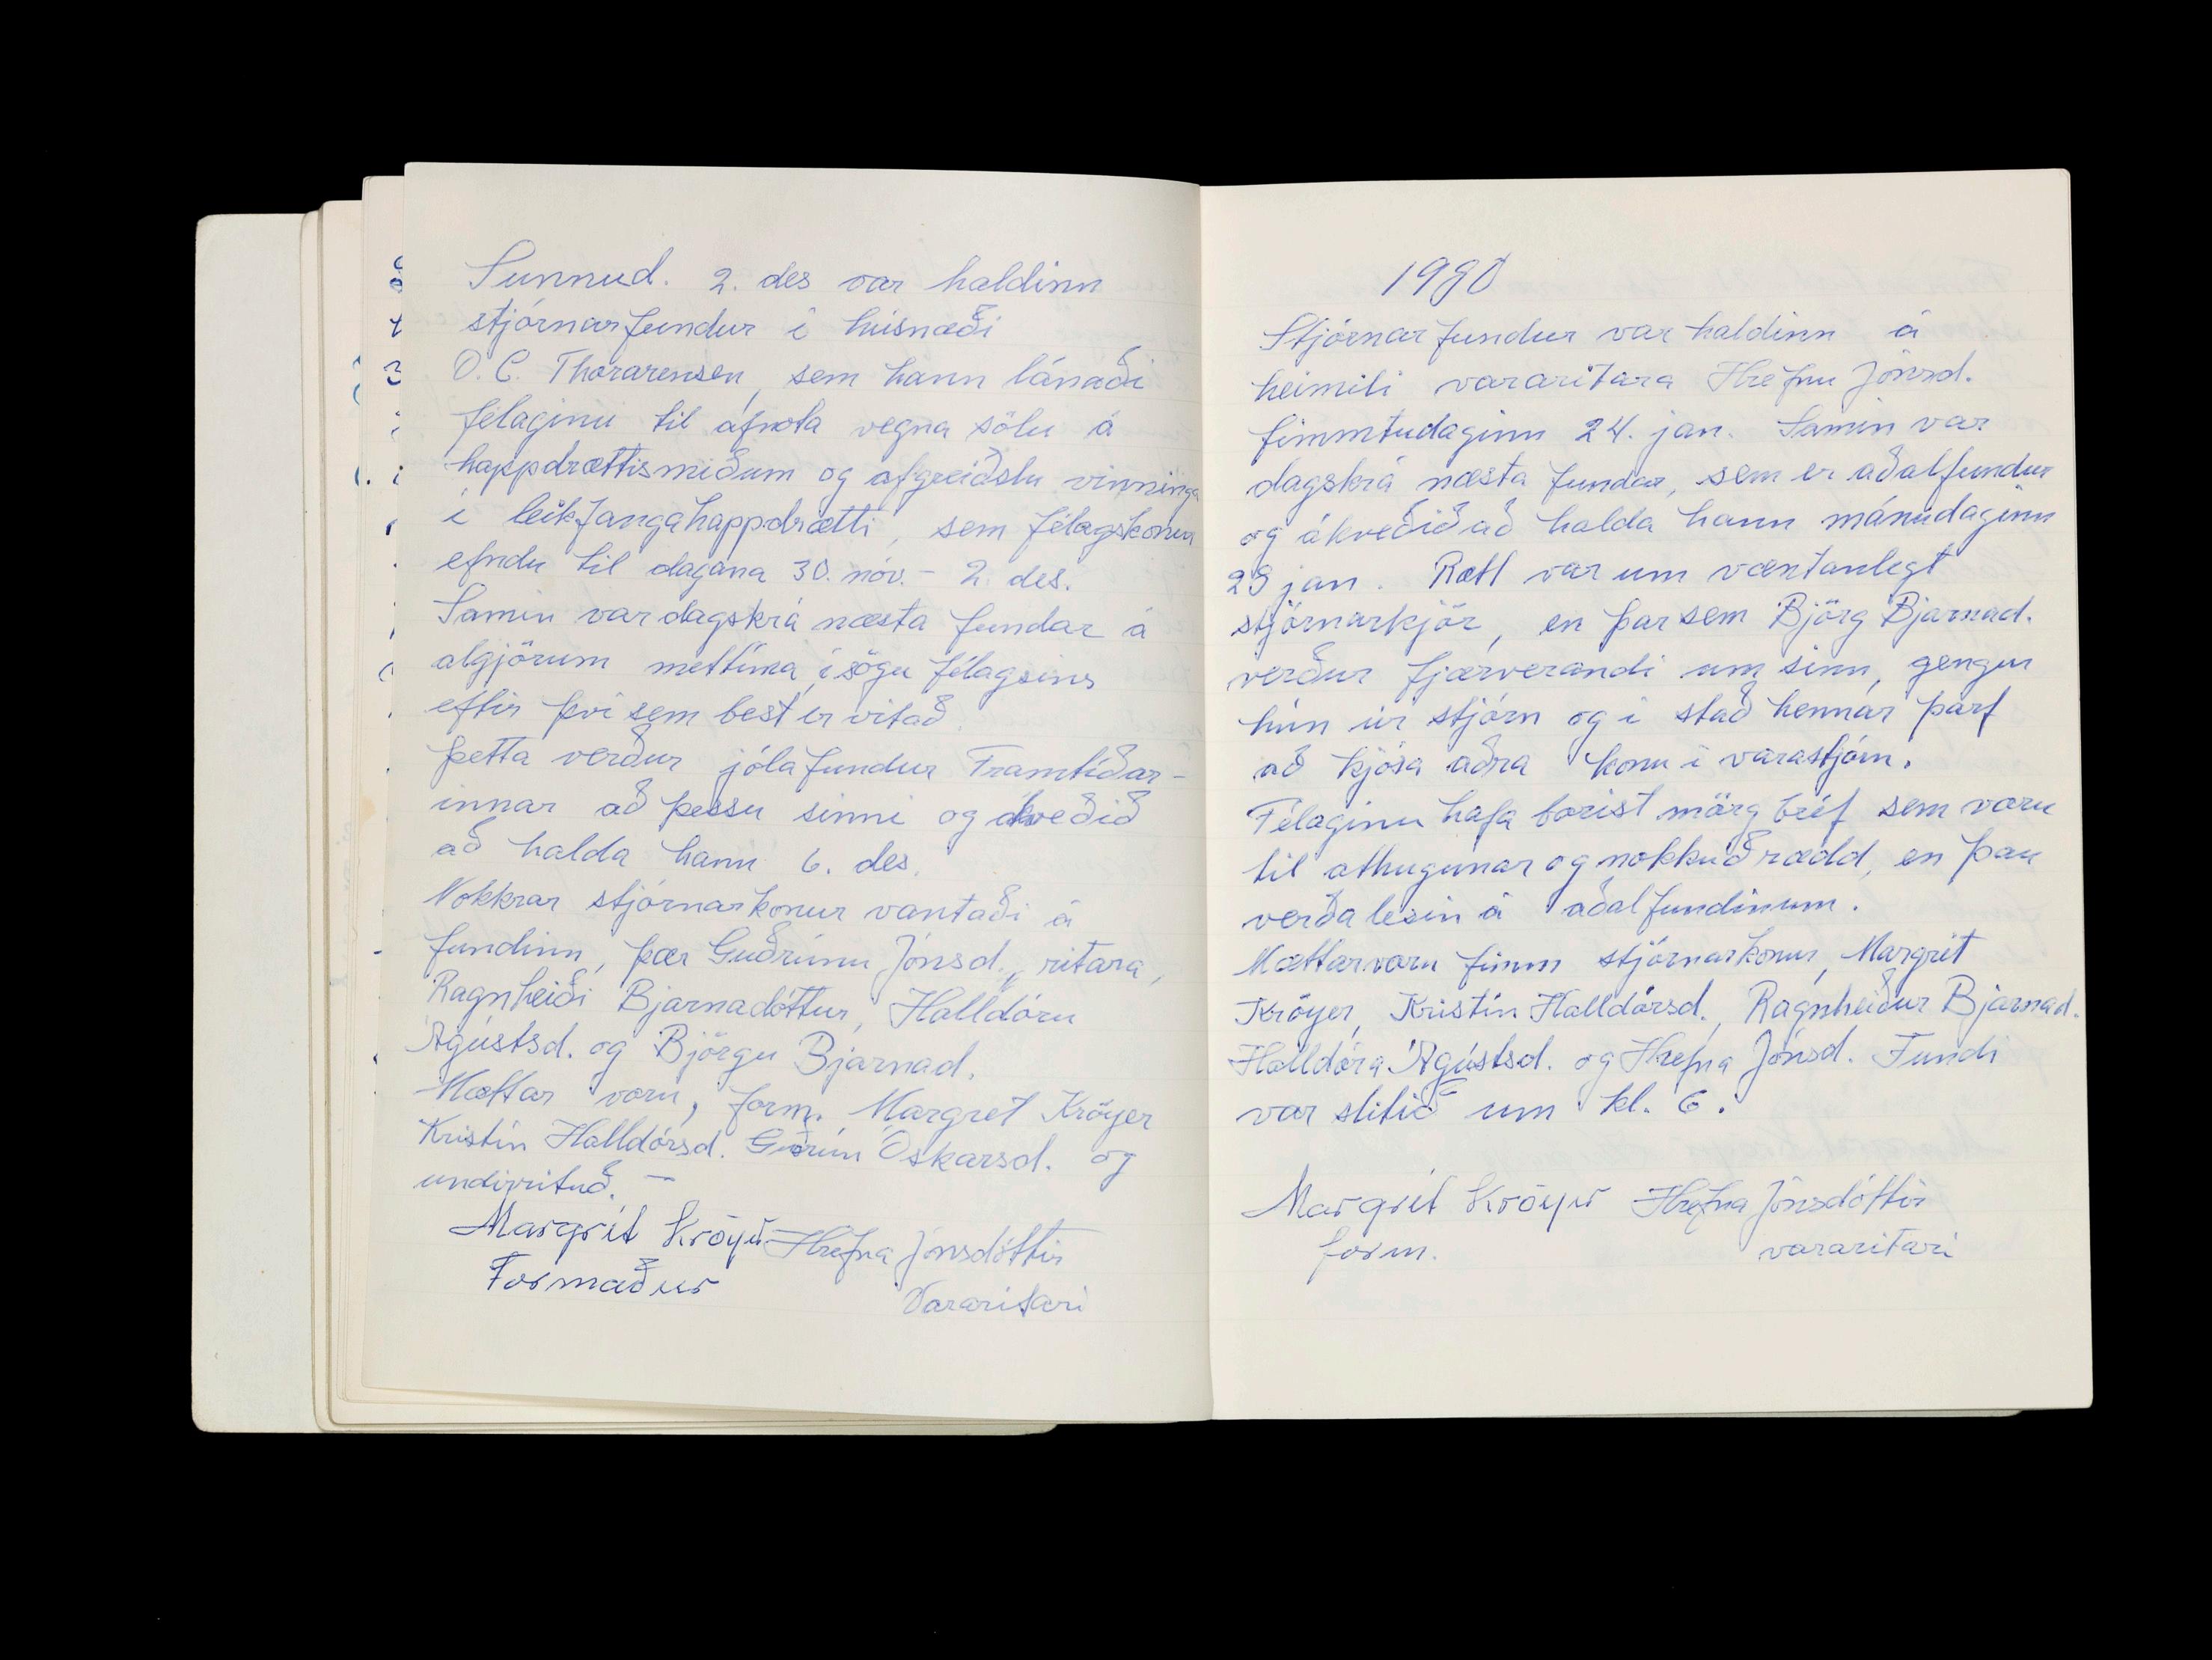 Sunnud. 2. des var haldinn
stjórnarfundur í húsnæði
O.C. Thorarensen, sem hann lánaði
félaginu til afnota vegna sölu á
happdrættismiðum og afgreiðslu vinninga
í leikfangahappdrætti, sem félagskonur
efndu til dagana 30. nóv. - 2. des.
Samin var dagskrá næsta fundar á
algjörum mettíma, í sögu félagsins
eftir því sem best er vitað.
Þetta verður jólafundur Framtíðar-
innar að þessu sinni og ákveðið
að halda hann 6. des.
Nokkrar stjórnarkonur vantaði á
fundinn, þær Guðrúnu Jónsd., ritara,
Ragnheiði Bjarnadóttur, Halldóru
Ágústsd. og Björgu Bjarnad.
Mættar voru, form. Margret Kröyer
Kristín Halldórsd. Guðrún Óskarsd. og
undirrituð. -
Margrét Kröyer Hrefna Jónsdóttir
Formaður Vararitari
1980
Stjórnarfundur var haldinn á
heimili vararitara Hrefnu Jónsd.
fimmtudaginn 24. jan. Samin var
dagskrá næsta fundar, sem er aðalfundur
og ákveðið að halda hann mánudaginn
28 jan. Rætt var um væntanlegt
stjórnarkjör, en þar sem Björg Bjarnad.
verður fjærverandi um sinn, gengur
hún úr stjórn og í stað hennar þarf
að kjósa aðra konu í varastjórn.
Félaginu hafa borist mörg bréf sem voru
til athugunar og nokkuð rædd, en þau
verða lesin á aðalfundinum.
Mættar voru fimm stjórnarkonur, Margrét
Kröyer, Kristín Halldórsd., Ragnheiður Bjarnad.
Halldóra Ágústsd. og Hrefna Jónsd. Fundi
var slitið um kl. 6.
Margrét Kröyer Hrefna Jónsdóttir
form. vararitari